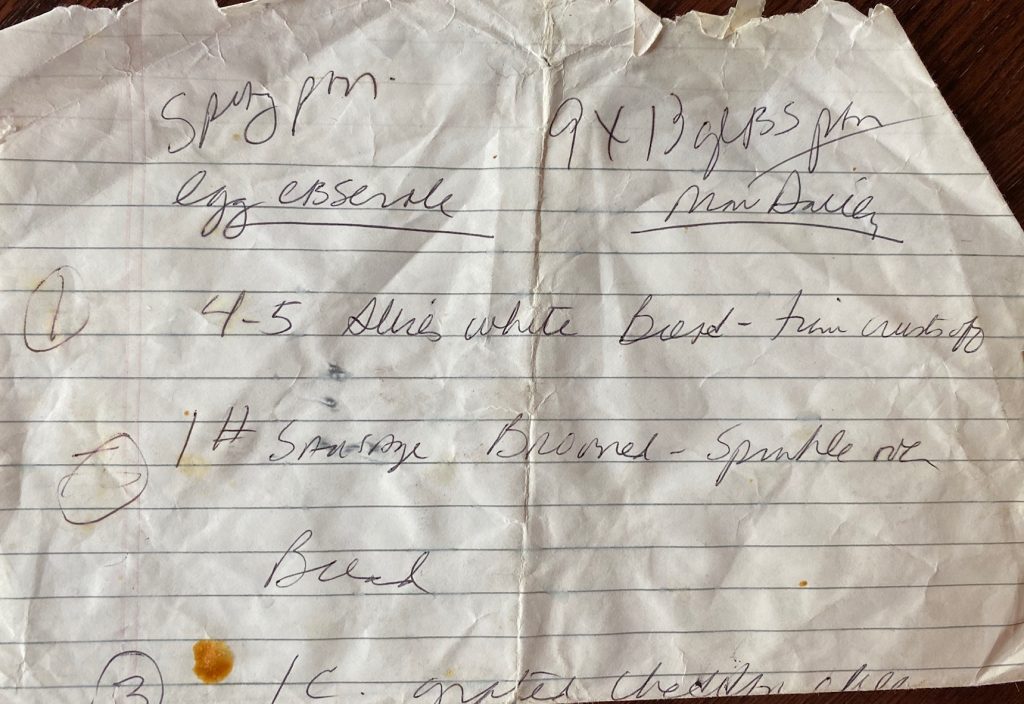 Spray pan 9 X 13 glass pan
egg casserole
① 4-5 slices white Bread - trim crusts off
② 1# Sausage Browned - Sprinkle over
Bread
③ 1 C. grated cheddar